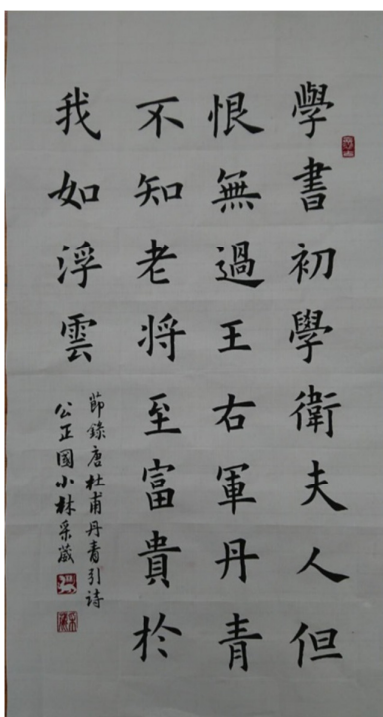 學書初學衛夫人但
恨無過王右軍丹青
不知老將至富貴於
我如浮雲
節錄唐杜甫丹青引詩
公正國小林采葳